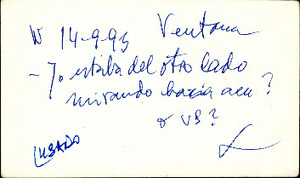 W 14-9-93 Ventana
- Yo estaba del otro lado
mirando hacia acu ?
o vs ?
USADO